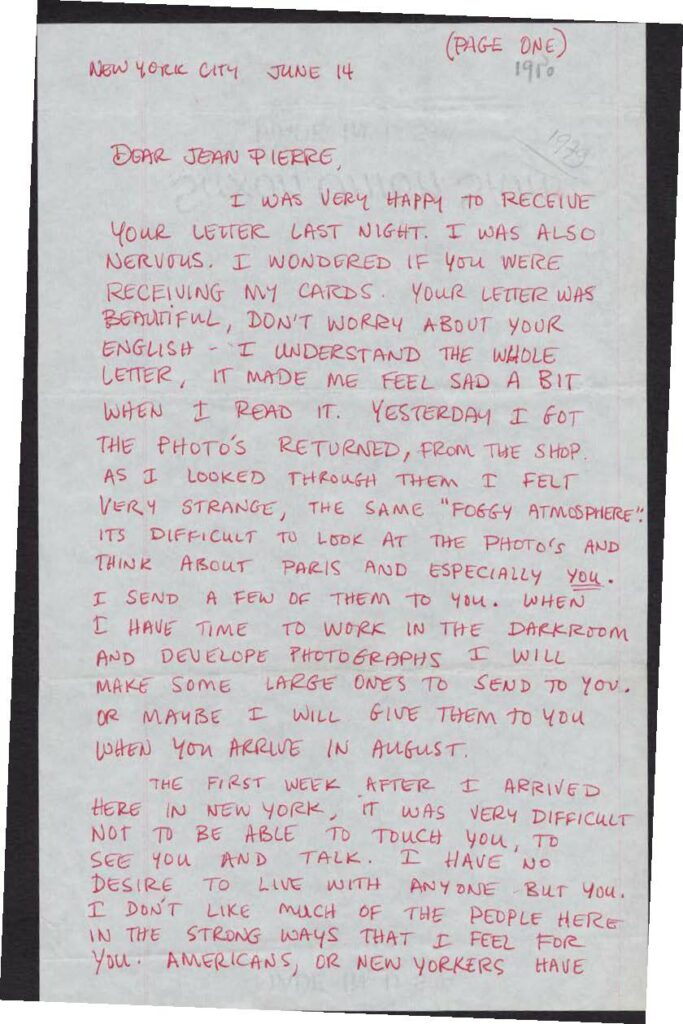 (PAGE ONE)
NEW YORK CITY JUNE 14
DEAR JEAN PIERRE,
I WAS VERY HAPPY TO RECEIVE
YOUR LETTER LAST NIGHT. I WAS ALSO
NERVOUS. I WONDERED IF YOU WERE
RECEIVING MY CARDS. YOUR LETTER WAS
BEAUTIFUL, DON'T WORRY ABOUT YOUR
ENGLISH - I UNDERSTAND THE WHOLE
LETTER, IT MADE ME FEEL SAD A BIT
WHEN I READ IT. YESTERDAY I GOT
THE PHOTO'S RETURNED, FROM THE SHOP.
AS I LOOKED THROUGH THEM I FELT
VERY STRANGE, THE SAME "FOGGY ATMOSPHERE".
ITS DIFFICULT TO LOOK AT THE PHOTO'S AND
THINK ABOUT PARIS AND ESPECIALLY YOU.
I SEND A FEW OF THEM TO YOU. WHEN
I HAVE TIME TO WORK IN THE DARKROOM
AND DEVELOPE PHOTOGRAPHS I WILL
MAKE SOME LARGE ONES TO SEND TO YOU.
OR MAYBE I WILL GIVE THEM TO YOU
WHEN YOU ARRIVE IN AUGUST.
THE FIRST WEEK AFTER I ARRIVED
HERE IN NEW YORK, IT WAS VERY DIFFICULT
NOT TO BE ABLE TO TOUCH YOU, TO
SEE YOU AND TALK. I HAVE NO
DESIRE TO LIVE WITH ANYONE BUT YOU.
I DON'T LIKE MUCH OF THE PEOPLE HERE
IN THE STRONG WAYS THAT I FEEL FOR
YOU. AMERICANS, OR NEW YORKERS HAVE